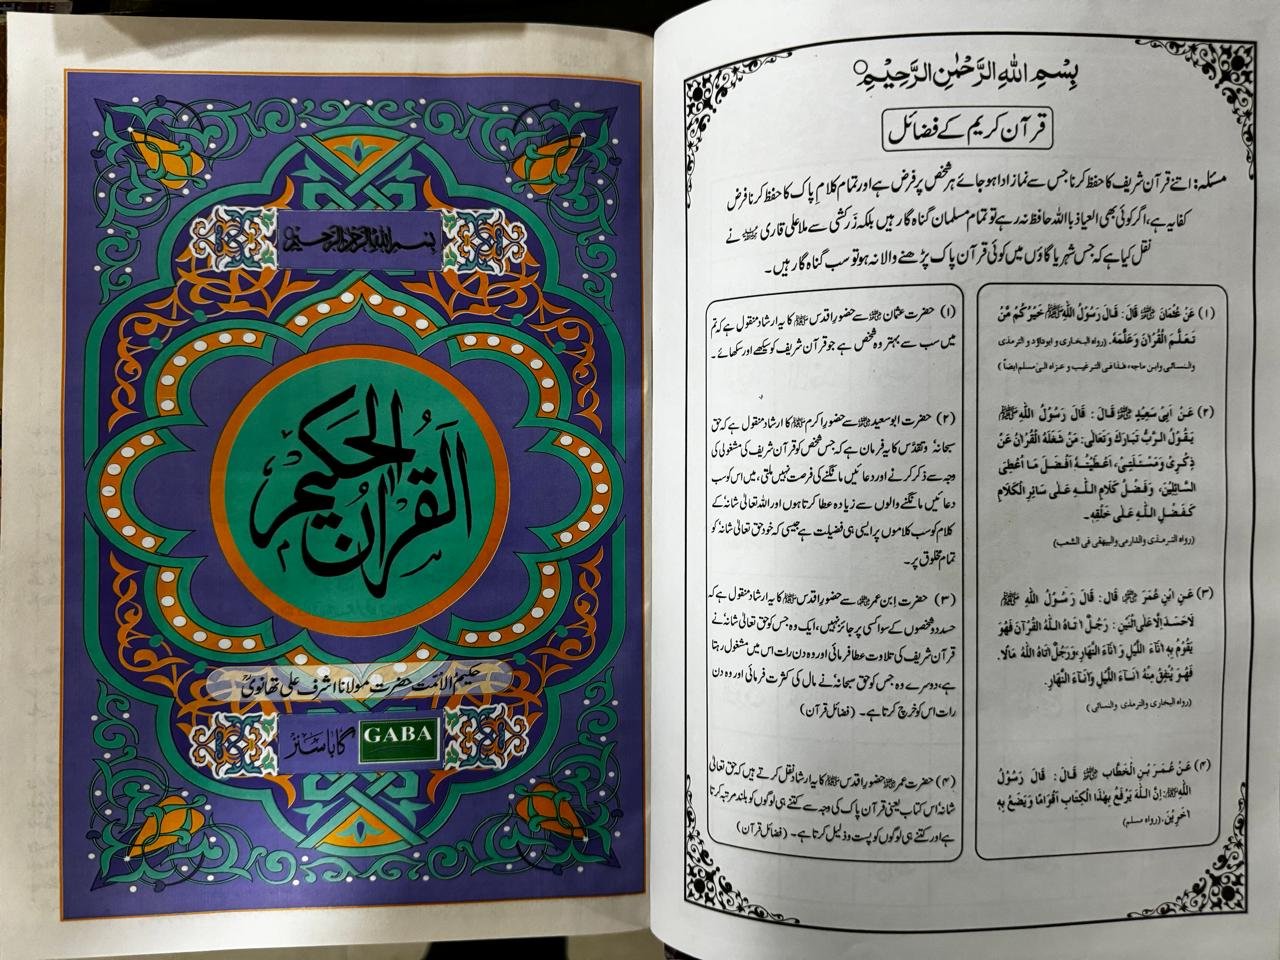 بسم الله الرحمن الرحيم
القرآن الحكيم
حکیم الاُمت حضرت مولانا اشرف علی تھانویؒ
گاباسنز
GABA
بِسْمِ اللهِ الرَّحْمٰنِ الرَّحِيْمِ○
قرآن کریم کے فضائل
مسئلہ: اتنے قرآن شریف کا حفظ کرنا جس سے نماز ادا ہو جائے ہر شخص پر فرض ہے اور تمام کلام پاک کا حفظ کرنا فرض
کفایہ ہے، اگر کوئی بھی العیاذ باللہ حافظ نہ رہے تو تمام مسلمان گناہ گار ہیں بلکہ زرکشی سے ملا علی قاری نے
نقل کیا ہے کہ جس شہر یا گاؤں میں کوئی قرآن پاک پڑھنے والا نہ ہو تو سب گناہ گار ہیں۔
(۱) عَنْ عُثْمَانَ قَالَ: قَالَ رَسُوْلُ اللّٰهِ ﷺ خَيْرُكُمْ مَّنْ
تَعَلَّمَ الْقُرْاٰنَ وَعَلَّمَهٗ. (رواه البخارى و ابوداؤد و الترمذى
والنسائى وابن ماجه، هذا فى الترغيب و عزاه الىٰ مسلم ايضاً)
(۲) عَنْ اَبِيْ سَعِيْدٍ قَالَ: قَالَ رَسُوْلُ اللّٰهِ ﷺ
يَقُوْلُ الرَّبُّ تَبَارَكَ وَتَعَالٰى: مَنْ شَغَلَهُ الْقُرْاٰنُ عَنْ
ذِكْرِيْ وَمَسْئَلَتِيْ، اَعْطَيْتُهٗ اَفْضَلَ مَا اُعْطِي
السَّائِلِيْنَ، وَفَضْلُ كَلَامِ اللّٰهِ عَلٰى سَائِرِ الْكَلَامِ
كَفَضْلِ اللّٰهِ عَلٰى خَلْقِهٖ۔
(رواه الترمذى والدارمى والبيهقى فى الشعب)
(۳) عَنِ ابْنِ عُمَرَ قَالَ: قَالَ رَسُوْلُ اللّٰهِ ﷺ
لَاحَسَدَ اِلَّا عَلَى اثْنَيْنِ: رَجُلٌ اٰتَاهُ اللّٰهُ الْقُرْاٰنَ فَهُوَ
يَقُوْمُ بِهٖ اٰنَاءَ اللَّيْلِ وَ اٰنَاءَ النَّهَارِ، وَرَجُلٌ اٰتَاهُ اللّٰهُ مَالًا.
فَهُوَ يُنْفِقُ مِنْهُ اٰنَاءَ اللَّيْلِ وَاٰنَاءَ النَّهَارِ.
(رواه البخارى والترمذى والنسائى)
(۴) عَنْ عُمَرَ بْنِ الْخَطَّابِ قَالَ: قَالَ رَسُوْلُ
اللّٰهِ ﷺ: اِنَّ اللّٰهَ يَرْفَعُ بِهٰذَا الْكِتَابِ اَقْوَامًا وَيَضَعُ بِهٖ
اٰخَرِيْنَ. (رواه مسلم)
(۱) حضرت عثمان سے حضور اقدس ﷺ کا یہ ارشاد منقول ہے کہ تم
میں سب سے بہتر وہ شخص ہے جو قرآن شریف کو سیکھے اور سکھائے۔
(۲) حضرت ابوسعید سے حضور اکرم ﷺ کا ارشاد منقول ہے کہ حق
سبحانہٗ و تقدس کا یہ فرمان ہے کہ جس شخص کو قرآن شریف کی مشغولی کی
وجہ سے ذکر کرنے اور دعائیں مانگنے کی فرصت نہیں ملتی، میں اس کو سب
دعائیں مانگنے والوں سے زیادہ عطا کرتا ہوں اور اللہ تعالیٰ شانہٗ کے
کلام کو سب کلاموں پر ایسی ہی فضیلت ہے جیسی کہ خود حق تعالیٰ شانہٗ کو
تمام مخلوق پر۔
(۳) حضرت ابن عمر سے حضور اقدس ﷺ کا یہ ارشاد منقول ہے کہ
حسد دو شخصوں کے سوا کسی پر جائز نہیں، ایک وہ جس کو حق تعالیٰ شانہٗ نے
قرآن شریف کی تلاوت عطا فرمائی اور وہ دن رات اس میں مشغول رہتا
ہے، دوسرے وہ جس کو حق سبحانہٗ نے مال کی کثرت فرمائی اور وہ دن
رات اس کو خرچ کرتا ہے۔ (فضائل قرآن)
(۴) حضرت عمر حضور اقدس ﷺ کا یہ ارشاد نقل کرتے ہیں کہ حق تعالیٰ
شانہٗ اس کتاب یعنی قرآن پاک کی وجہ سے کتنے ہی لوگوں کو بلند مرتبہ کرتا
ہے اور کتنے ہی لوگوں کو پست و ذلیل کرتا ہے۔ (فضائل قرآن)